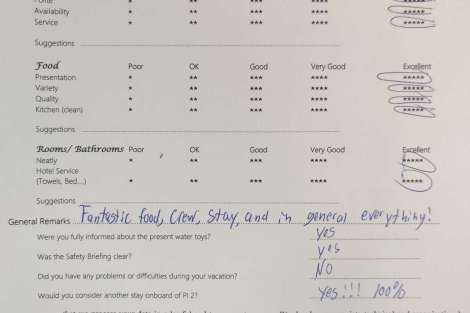 Availability * ** *** **** *****
Service * ** *** **** *****
Suggestions
Food Poor OK Good Very Good Excellent
Presentation * ** *** **** *****
Variety * ** *** **** *****
Quality * ** *** **** *****
Kitchen (clean) * ** *** **** *****
Suggestions
Rooms/ Bathrooms Poor OK Good Very Good Excellent
Neatly * ** *** **** *****
Hotel Service
(Towels, Bed....) * ** *** **** *****
Suggestions
General Remarks Fantastic food, Crew, Stay, and in general everything!
Were you fully informed about the present water toys? Yes
Was the Safety Briefing clear? Yes
Did you have any problems or difficulties during your vacation? NO
Would you consider another stay onboard of PI 2? Yes!!! 100%